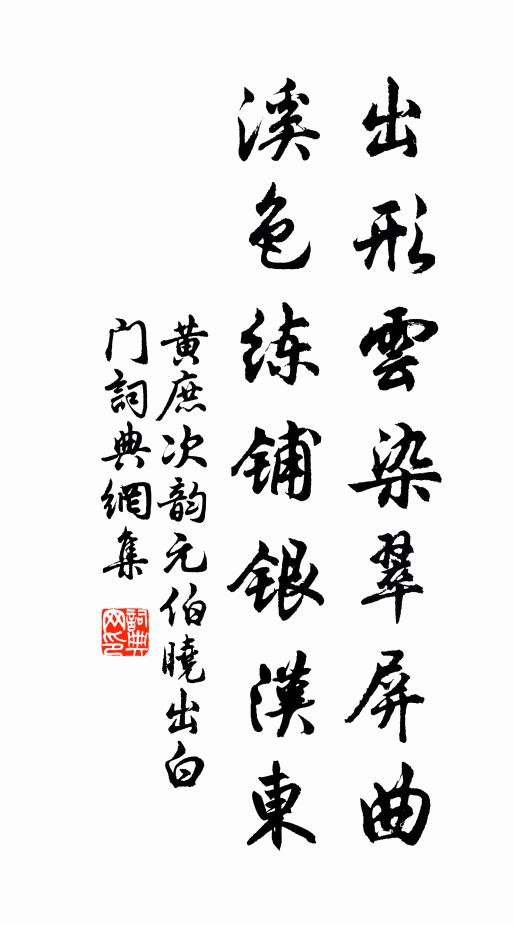 出形雲染翠屏曲
溪色练铺银漢東
黄庶次韵元伯曉出白
门詞典網集
詞典
网印